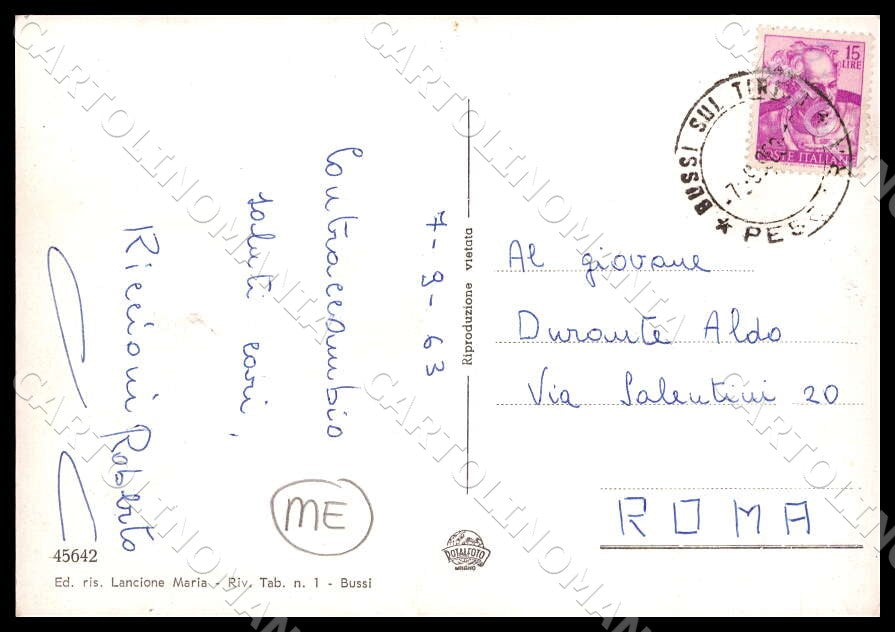 7-9-63
Contraccambio
saluti cari,
Riccioni Robberto
ME
45642
Ed. ris. Lancione Maria - Riv. Tab. n. 1 - Bussi
Riproduzione vietata
ROTALFOTO
MILANO
15
LIRE
POSTE ITALIANE
BUSSI SUL TIRINO
Al giovane
Durante Aldo
Via Salentini 20
ROMA
CARTOLINOMANIA